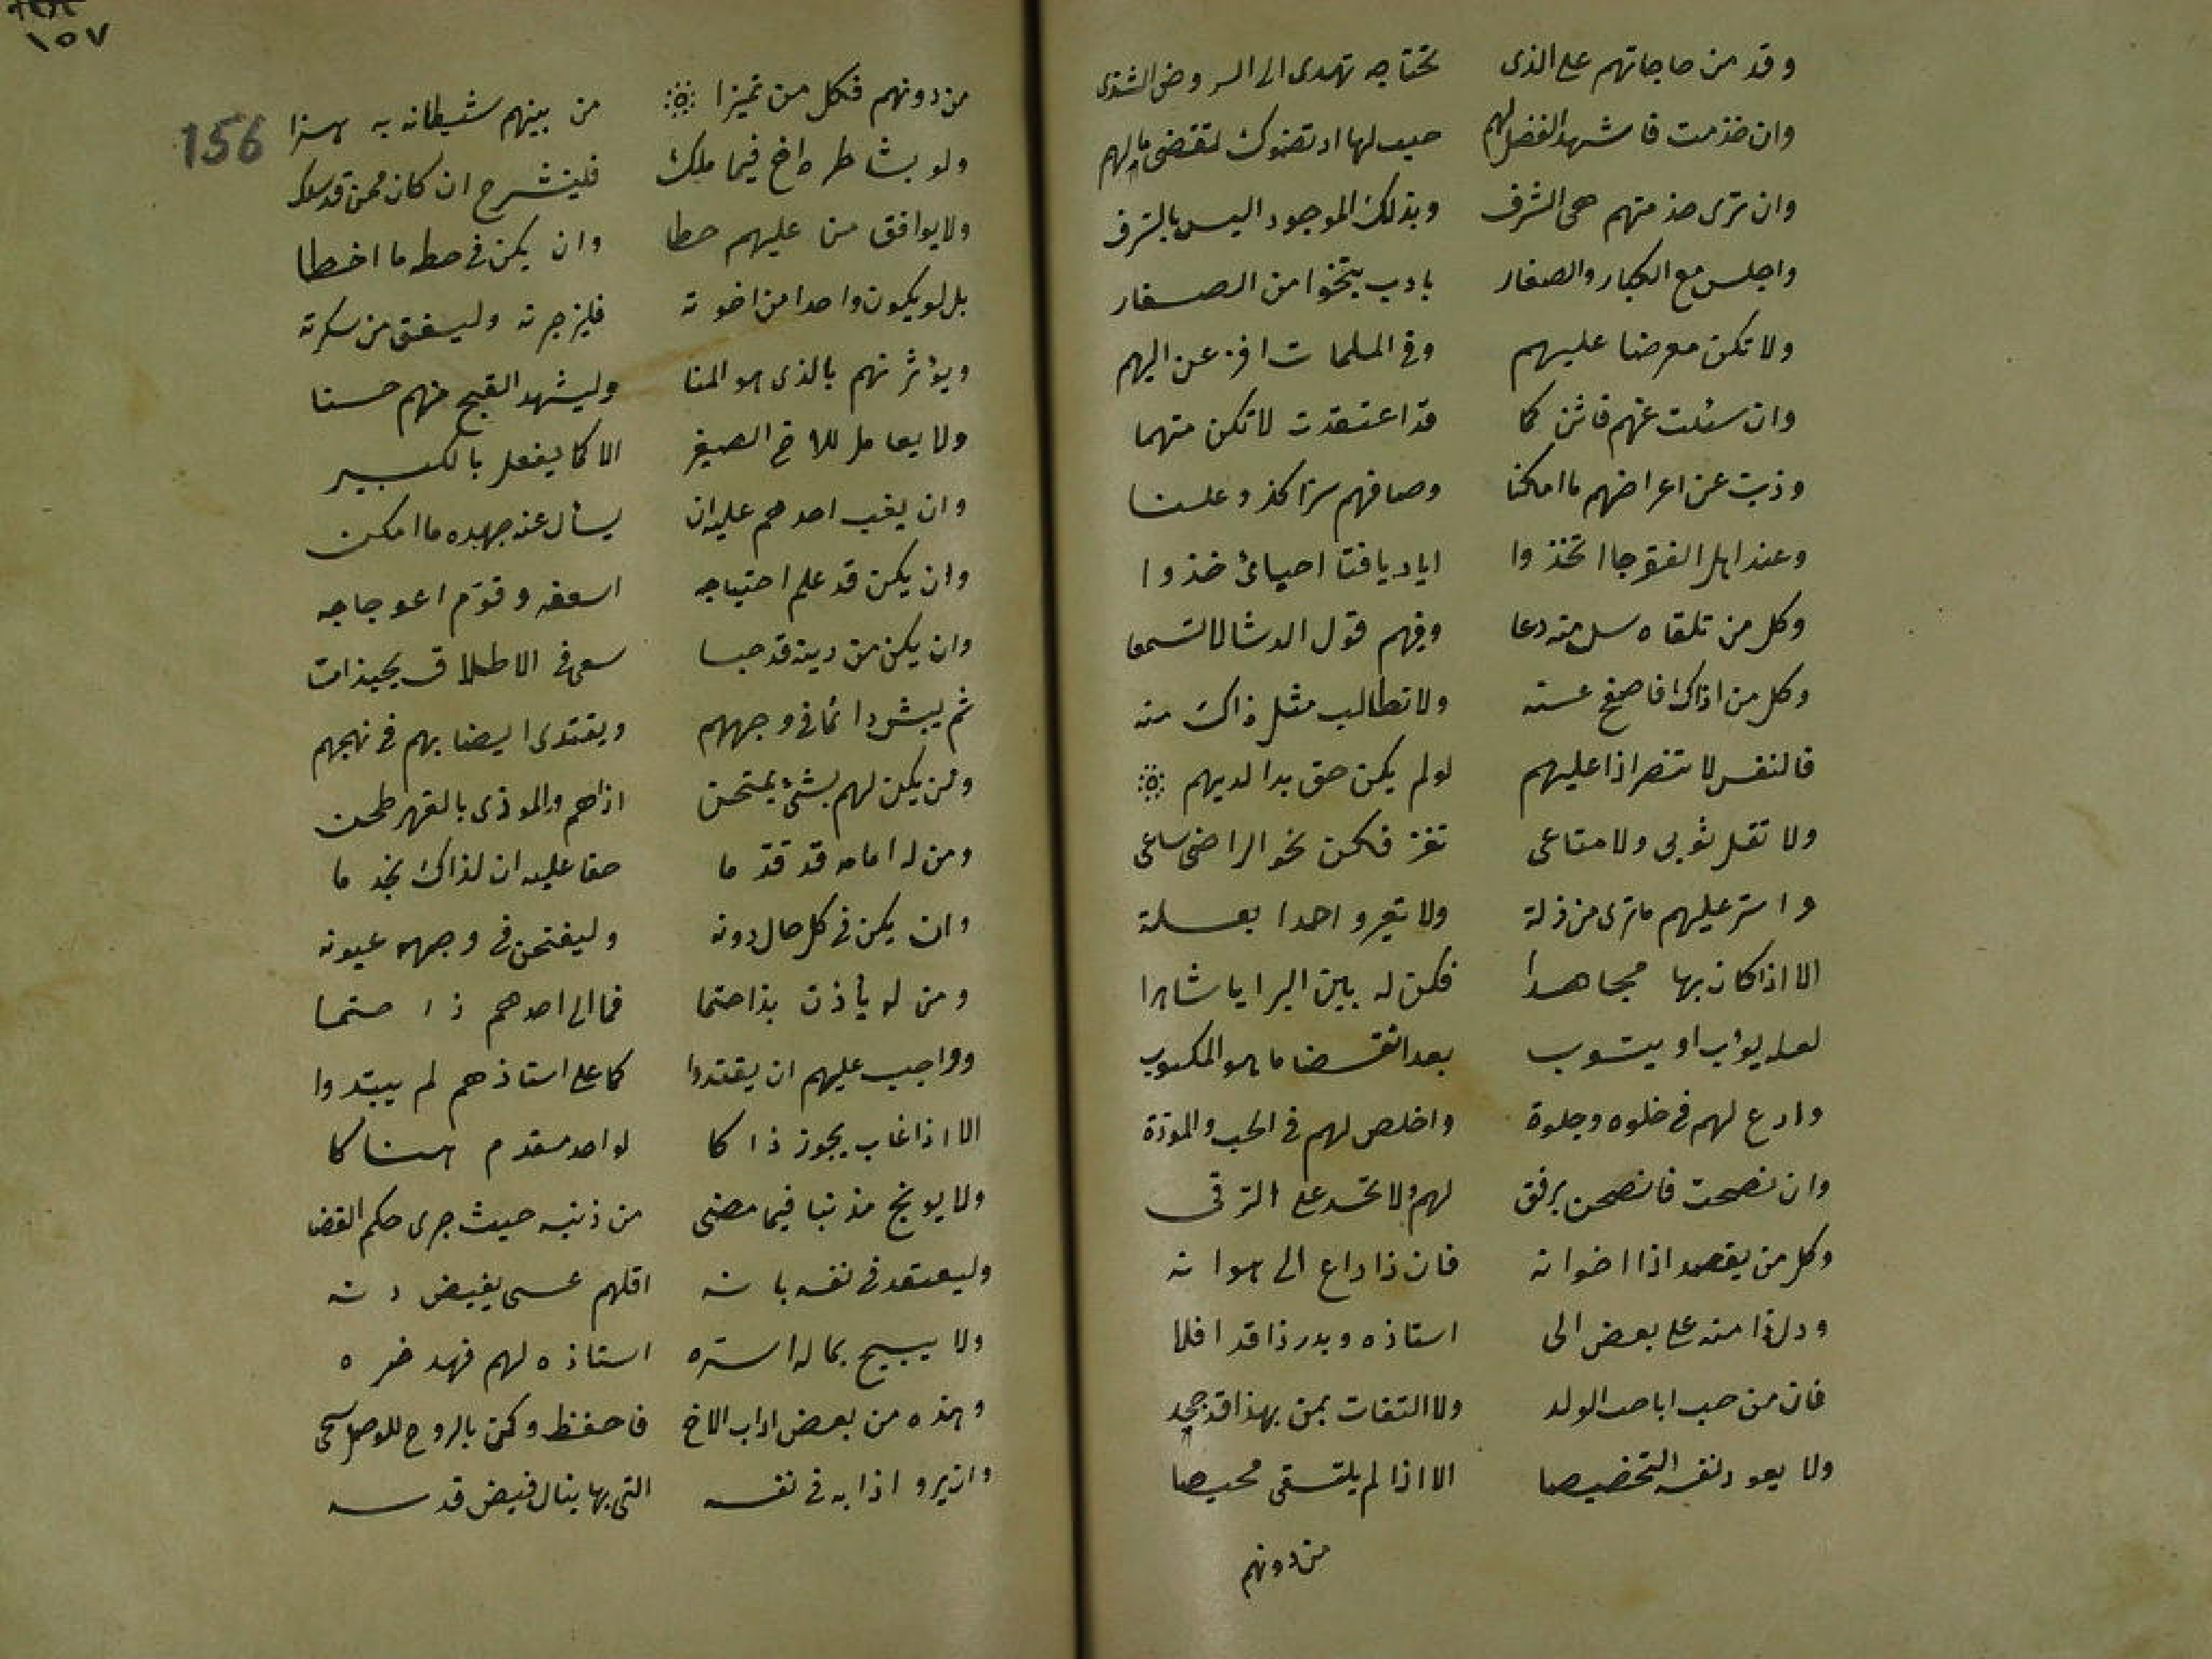 وقدمن حاجاتهم على الذى تحتاجه تهدى الى الروض الشذى
وان خدمت فاشهد الفضل لهم حيث لها ارتضوك لتقضى مالهم
وان ترى خدمتهم هى الشرف وبذلك الموجود اليس بالسرف
واجلس مع الكبار والصغار بادب يتخوا من الصغار
ولا تكن معرضا عليهم وفى الملمات افزعن اليهم
وان سئلت عنهم فاثن كما قد اعتقدت لا تكن متهما
وذب عن اعراضهم ما امكنا وصافهم سرا كذ وعلنا
وعند اهل الفتوح اتخذوا اياد يافتا احيائ خذوا
وكل من تلقاه سل منه دعا وفيهم قول الوشا لا تسمعا
وكل من اذاك فاصفح عنه ولا تطالب مثل ذاك منه
فالنفس لا تنتصر اذا عليهم لو لم يكن حق بدا لديهم
ولا تقل ثوبى ولا متاعى تغز فكن نحو الراضى ساعى
واستر عليهم ماترى من زلة ولا تعيروا احدا بعلة
الا اذا كان بها مجاهدا فكن له بين البرايا شاهرا
لعله يواب او يتوب بعد انقضا ما هو المكتوب
وادع لهم فى خلوه وجلوة واخلص لهم فى الحب والمودة
وان نصحت فانصحن برفق لهم ولا تحسد على الترقى
وكل من يقصد اذا اخوانه فان ذا داع الى هوانه
ودل ذا منه على بعض الى استاذه وبدر ذا قد افلا
فان من حب ابا حب الولد ولا التفات بمن بهذا قد جحد
ولا يعود نفسه التخصيصا الا اذا لم يلتقى محيصا
من دونهم
١٥٧
156
من دونهم فكل من تميزا من بينهم شيطانه به هزا
ولو يشاطره اخ فيما ملك فلينشرح ان كان ممن قد سلك
ولا يوافق من عليهم حطا وان يكن فى حطه ما اخطا
بل لو يكون واحدا من اخوته فليزجرنه وليفق من سكرته
ويؤثرنهم بالذى هو المنا وليشهد القبيح منهم حسنا
ولا يعامل للاخ الصغير الا كما يفعل بالكبير
وان يغب احدهم عليه ان يسأل عنه جهده ما امكن
وان يكن قد علم احتياجه اسعفه وقوم اعوجاجه
وان يكن من دينه قد حبسا سعى فى الاطلاق
ثم يبش دائما فى وجههم ويقتدى ايضا بهم فى نهجهم
ولن يكن لهم بشئ يمتحن اذاهم والموذى بالقهر طحن
ومن له امامه قد قدما حقا عليه ان لذاك يخدما
وان يكن فى كل حال دونه وليفتحن فى وجهه عيونه
ومن له يأذن بذا حتما فما الى احدهم ذا حتما
وواجب عليهم ان يقتدوا كما على استاذهم لم يبتدوا
الا اذا غاب يجوز ذا كا لواحد مقدم هناكا
ولا يوبخ مذنبا فيما مضى من ذنبه حيث جرى حكم القضا
وليعتقد فى نفسه بانه اقلهم عسى يفيض دنه
ولا يبيح بما له استره استاذه لهم فهد ضره
وهذه من بعض اداب الاخ فاحفظ وكن بالروح للوصل سخى
وان يرو اذابه فى نفسه التى بها ينال فيض قدسه